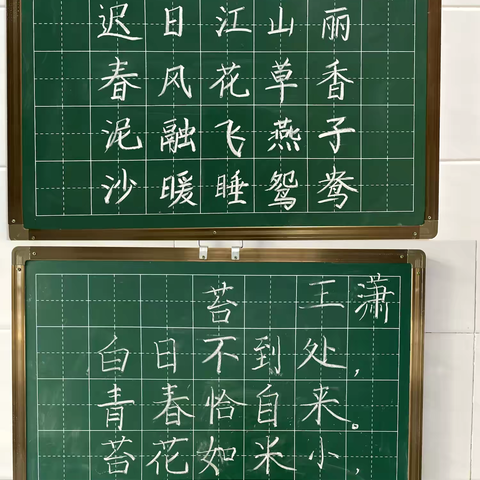 迟日江山丽
春风花草香
泥融飞燕子
沙暖睡鸳鸯
苔 王潇
白日不到处，
青春恰自来。
苔花如米小，